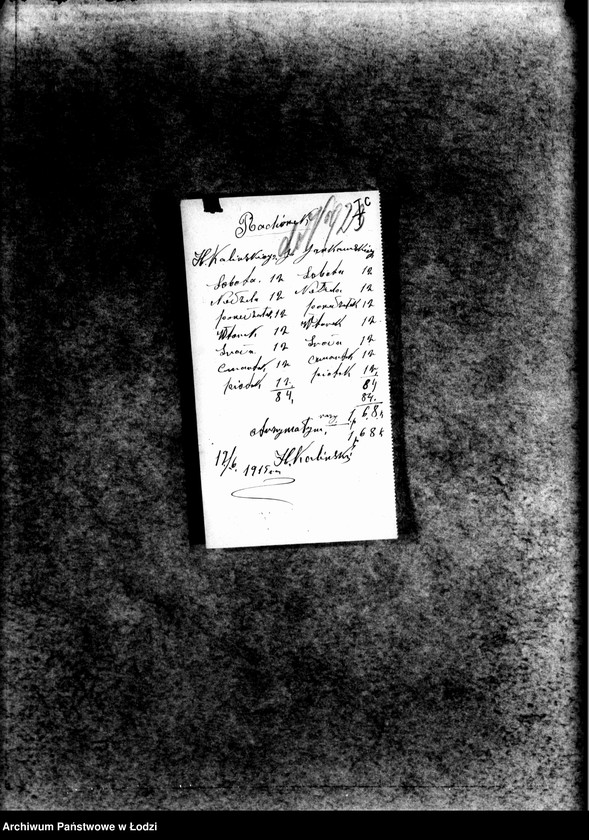 Rachunek
H. Kaliński Jankowski
Sobota. 12 Sobota 12
Niedziela 12 Niedziela 12
poniedziałek 12 poniedziałek 12
Wtorek 12 Wtorek 12
Środa 12 Środa 12
Czwartek 12 Czwartek 12
piątek 12 piątek 12
84, 84
84.
razy 1, 68 k
otrzymałem, 1 68 k
12/6. 1915 H. Kaliński
Archiwum Państwowe w Łodzi